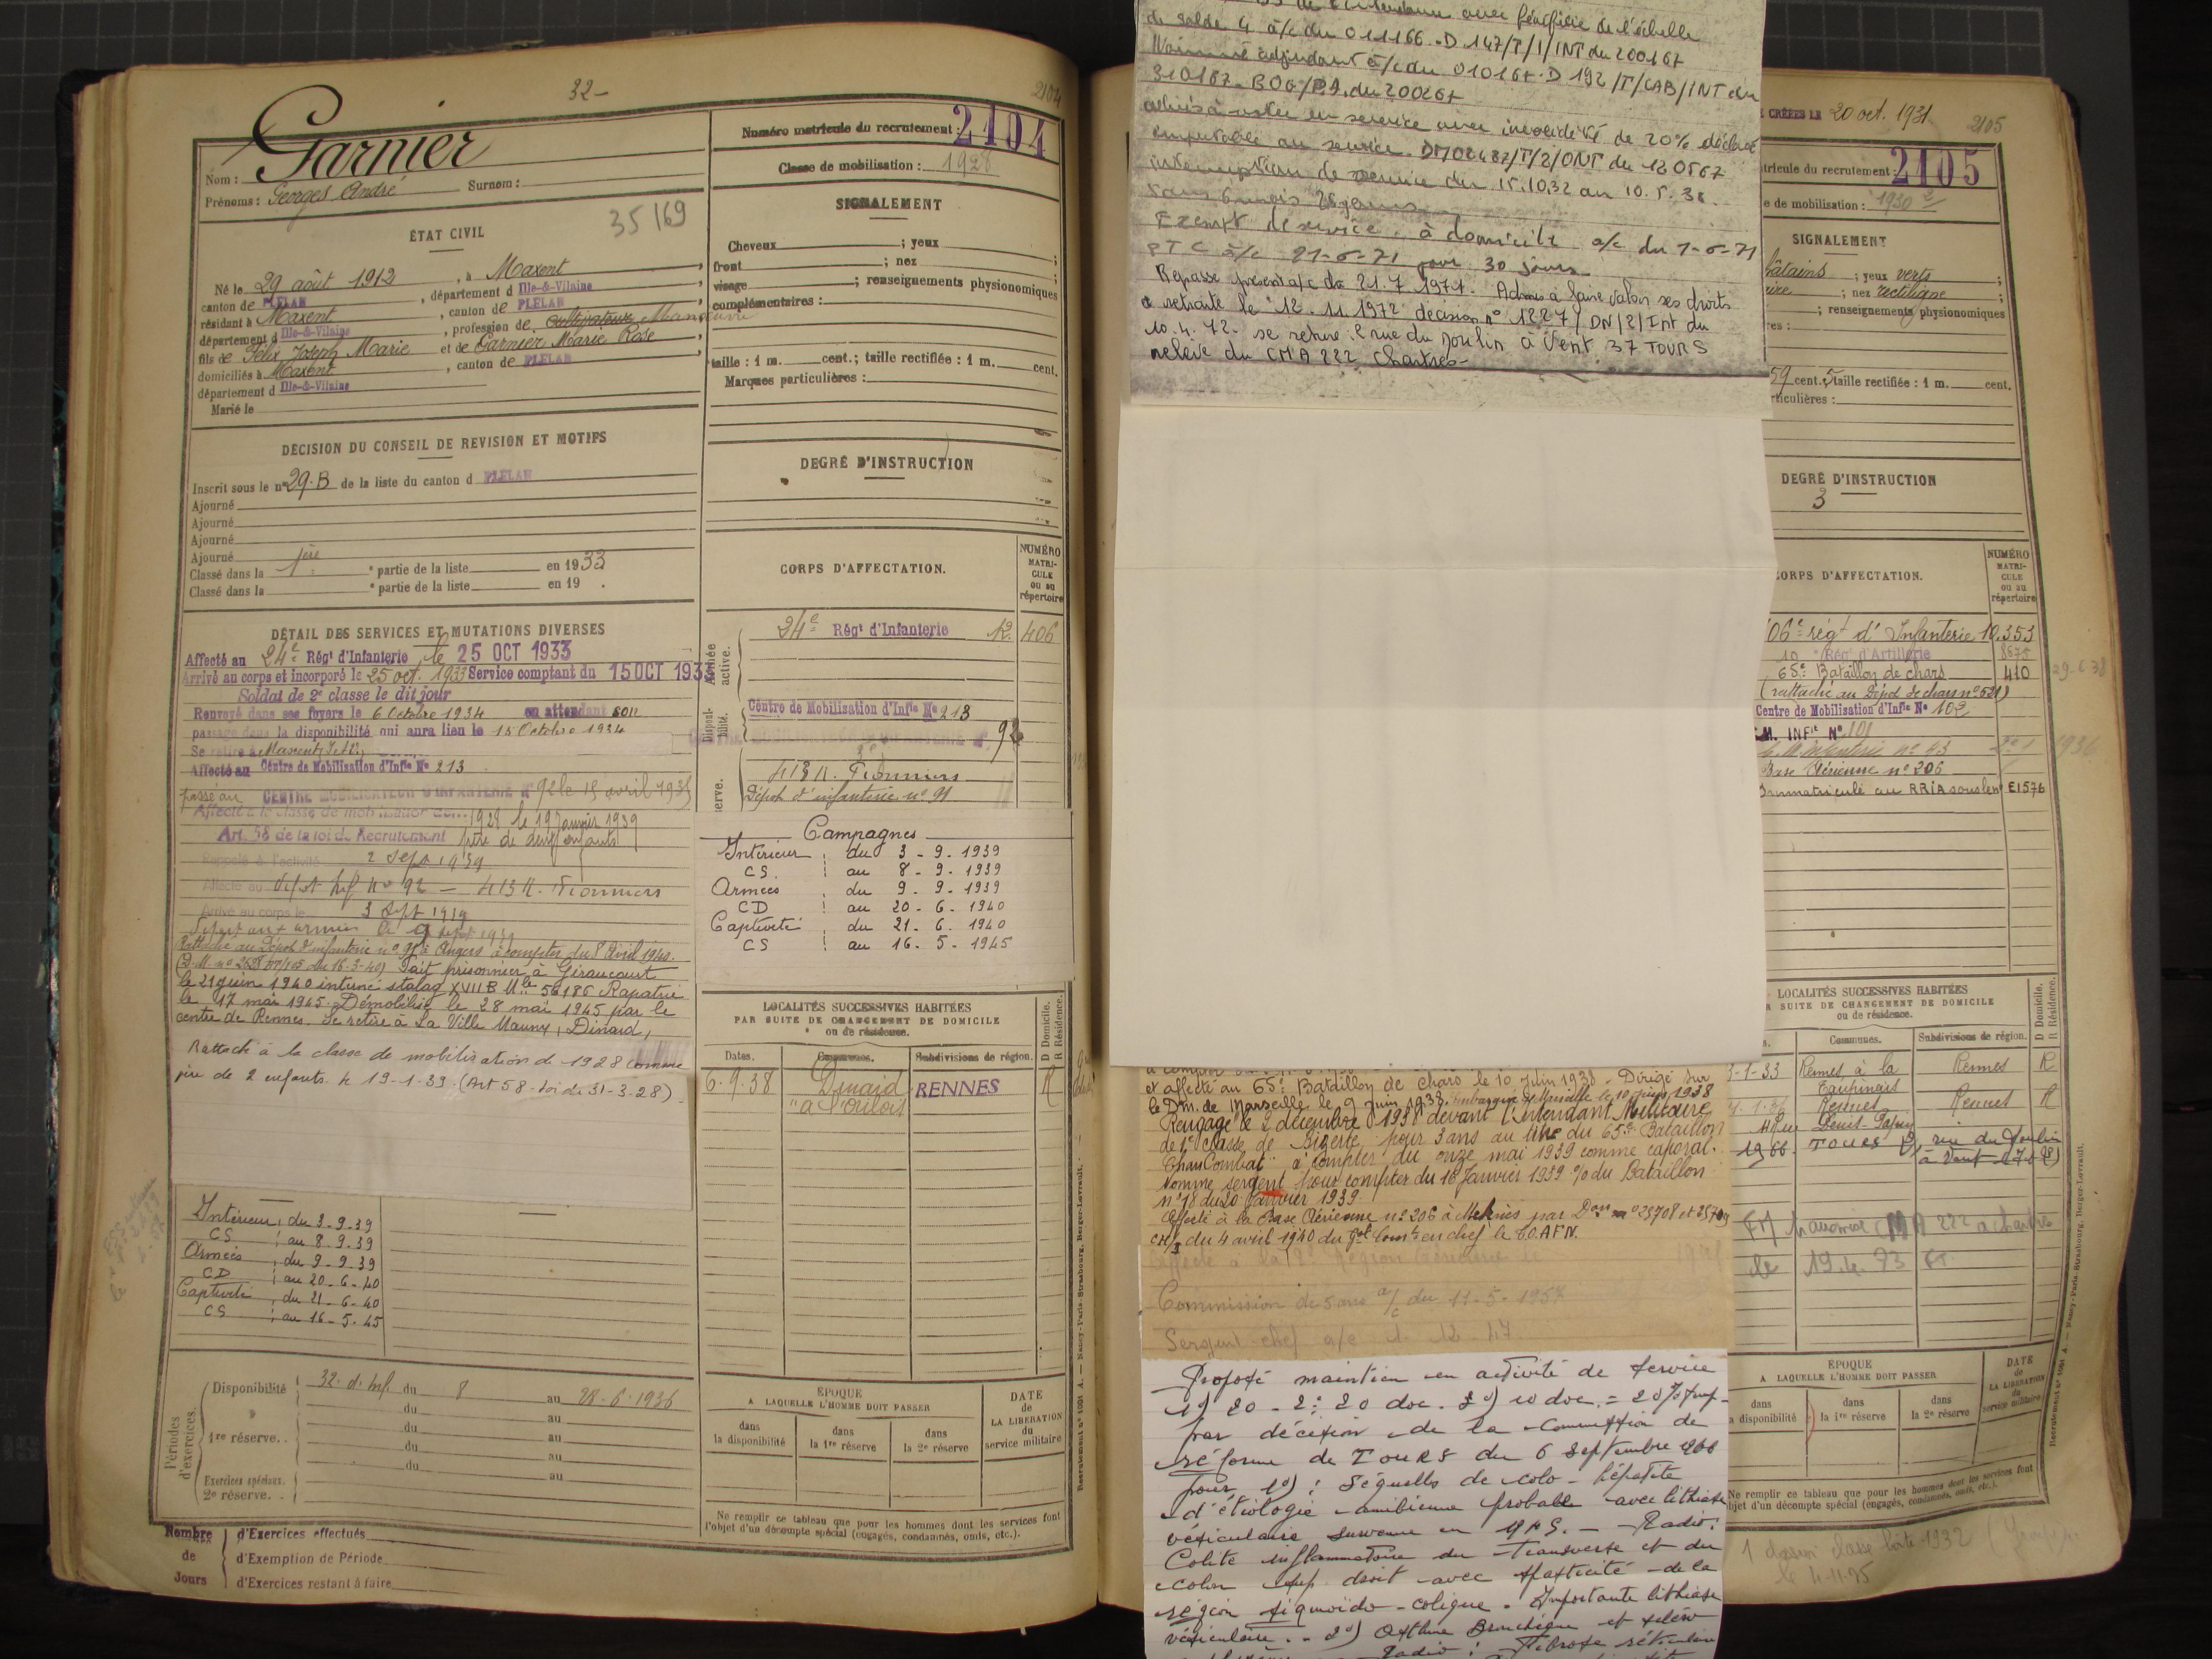 32-
2104
Garnier
Nom :
Prénoms : Georges André Surnom :
35/69
ÉTAT CIVIL
Né le 29 août 1912, à Maxent,
canton de PLÉLAN, département d Ille-&-Vilaine
résidant à Maxent, canton de PLÉLAN
département d Ille-&-Vilaine, profession de cultivateur Manœuvre
fils de Félix Joseph Marie et de Garnier Marie Rose
domiciliés à Maxent, canton de PLÉLAN
département d Ille-&-Vilaine
Marié le
DÉCISION DU CONSEIL DE REVISION ET MOTIFS
Inscrit sous le n° 29.B de la liste du canton d PLÉLAN
Ajourné
Ajourné
Ajourné
Ajourné
Classé dans la 1ère partie de la liste en 1933
Classé dans la e partie de la liste en 19 .
DÉTAIL DES SERVICES ET MUTATIONS DIVERSES
Affecté au 24e Régt d'Infanterie le 25 OCT 1933
Arrivé au corps et incorporé le 25 oct. 1933 Service comptant du 15 OCT 1933
Soldat de 2e classe le dit jour
Renvoyé dans ses foyers le 6 Octobre 1934 en attendant son
passage dans la disponibilité qui aura lieu le 15 Octobre 1934
Se retire à Maxent, I et V,
Affecté au Centre de Mobilisation d'Infie No 213
passé au CENTRE MOBILISATEUR D'INFANTERIE N° 92 le 15 avril 1935
Affecté à la classe de mobilisation de 1928 le 19 Janvier 1939
Art. 58 de la loi de Recrutement père de deux enfants
Rappelé à l'activité 2 Sept 1939
Affecté au dépôt Inf No 92 - 413 R. Pionniers
Arrivé au corps le 3 Sept 1939
Départ aux armées le 9 sept 1939
Rattaché au Dépôt d'infanterie n° 91 à Angers à compter du 8 Avril 1940.
Fait prisonnier à Giraucourt
le 21 juin 1940 interné stalag XVII B Mle 56186 Rapatrié
le 17 mai 1945. Démobilisé le 28 mai 1945 par le
centre de Rennes. Se retire à La Ville Mauny, Dinard,
Rattaché à la classe de mobilisation de 1928 comme
père de 2 enfants le 19-1-39 (Art 58 - loi du 31-3-28)
Intérieur : du 3-9-39
CS : au 8-9-39
Armées : du 9-9-39
CD : au 20-6-40
Captivité : du 21-6-40
CS : au 16-5-45
Périodes d'exercices.
Disponibilité 32. d. Inf. du 8 au 28-6-1936
du au
1re réserve. . du au
du au
du au
Exercices spéciaux.
2e réserve. .
Nombre de Jours
d'Exercices effectués
d'Exemption de Période
d'Exercices restant à faire
Numéro matricule du recrutement : 2104
Classe de mobilisation : 1928
SIGNALEMENT
Cheveux ; yeux ;
front ; nez ;
visage ; renseignements physionomiques
complémentaires :
taille : 1 m. cent.; taille rectifiée : 1 m. cent.
Marques particulières :
DEGRÉ D'INSTRUCTION
CORPS D'AFFECTATION.
NUMÉRO MATRICULE ou au répertoire
Armée active.
24e Régt d'Infanterie 12. 406
Disponibilité.
Centre de Mobilisation d'Infie No 213
92
413 R. Pionniers
Dépôt d'infanterie n° 91
Campagnes
Intérieur : du 3 - 9 - 1939
CS. : au 8 - 9 - 1939
Armées : du 9 - 9 - 1939
CD : au 20 - 6 - 1940
Captivité : du 21 - 6 - 1940
CS : au 16 - 5 - 1945
LOCALITÉS SUCCESSIVES HABITÉES
PAR SUITE DE CHANGEMENT DE DOMICILE
ou de résidence.
D Domicile. R Résidence.
Dates. Communes. Subdivisions de région.
6-9-38 Dinard RENNES R
ÉPOQUE
A LAQUELLE L'HOMME DOIT PASSER
dans la disponibilité
dans la 1re réserve
dans la 2e réserve
DATE de LA LIBERATION du service militaire
Ne remplir ce tableau que pour les hommes dont les services font
l'objet d'un décompte spécial (engagés, condamnés, omis, etc.).
Recrutement n° 1091 A. — Nancy-Paris-Strasbourg, Berger-Levrault.
avec bénéfice de l'échelle
de solde 4 à/c du 011166. D 147/T/1/INT du 200167
Nommé adjudant à/c du 010167. D 192/T/CAB/INT du
310167
admis à rester en service avec invalidité de 20% déclaré
imputable au service.
interruption de service du 15.10.32 au 10.5.38.
Exempt de service à domicile a/c du 1-6-71
PTC a/c 21-6-71 pour 30 jours
Repasse présent a/c du 21.7.1971. Admis à faire valoir ses droits
à retraite le 12.11.1972 décision n° 1227/DN/2/Int du
10.4.72. se retire : 2 rue du Moulin à Vent 37 TOURS
relève du CMA 222 Chartres-
et affecté au 65e Bataillon de chars le 10 juin 1938 - Dirigé sur
le Dm. de Marseille le 9 juin 1938. Embarqué à Marseille le 10 juin 1938
Rengagé le 2 décembre 1938 devant l'intendant Militaire
de 1e classe de Bizerte pour 3 ans au titre du 65e Bataillon
Chars Combat à compter du onze mai 1939 comme caporal.
Nommé sergent pour compter du 16 Janvier 1939 % du Bataillon
n° 18 du 20 Janvier 1939.
Affecté à la Base Aérienne n° 206 à Meknès
du 4 avril 1940 du Gal Comt en chef le T.O.A.F.N.
Commission de 5 ans a/c du 11-5-1957
Sergent-chef a/c 1-12-47
Proposé maintien en activité de service
1°) 20 - 2: 20 doc. 3°) 10 doc. = 20%
par décision de la commission de
réforme de TOURS du 6 septembre 1966
pour 1°) : Séquelles de colo-hépatite
d'étiologie amibienne probable avec lithiase
vésiculaire survenue en - Radio:
Colite inflammatoire du transverse et du
colon sup. droit avec spasticité de la
région sigmoïdo-colique. Importante lithiase
vésiculaire. - 2°) Asthme Bronchique et
Radio : Fibrose réticulaire
CRÉÉES LE 20 oct. 1931
2105
tricule du recrutement : 2105
e de mobilisation : 1930
SIGNALEMENT
hâtains ; yeux verts ;
; nez rectiligne ;
; renseignements physionomiques
res :
59 cent. 5 taille rectifiée : 1 m. cent.
rticulières :
DEGRÉ D'INSTRUCTION
3
CORPS D'AFFECTATION.
NUMÉRO MATRICULE ou au répertoire
06e régt d'Infanterie 10.353
10 Régt d'Artillerie 8675
65e Bataillon de chars 410 29-6-38
(rattaché au Dépôt de chars n° 521)
Centre de Mobilisation d'Infie No 102
M. INFIE No 101
Base Aérienne n° 206
Immatriculé au RRIA sous le n° E1576
LOCALITÉS SUCCESSIVES HABITÉES
R SUITE DE CHANGEMENT DE DOMICILE
ou de résidence.
D Domicile. R Résidence.
s. Communes. Subdivisions de région.
3-1-33 Rennes à la Rennes R
Taupinais
Rennes Rennes R
1966 TOURS 2, rue du Moulin
à Vent
CMA 222 à Chartres
le 19.4.73
ÉPOQUE
A LAQUELLE L'HOMME DOIT PASSER
dans a disponibilité
dans la 1re réserve
dans la 2e réserve
DATE de LA LIBERATION du service militaire
Ne remplir ce tableau que pour les hommes dont les services font
bjet d'un décompte spécial (engagés, condamnés, omis, etc.).
Recrutement n° 1091 A. — Nancy-Paris-Strasbourg, Berger-Levrault.
1 dossier classé boîte 1932